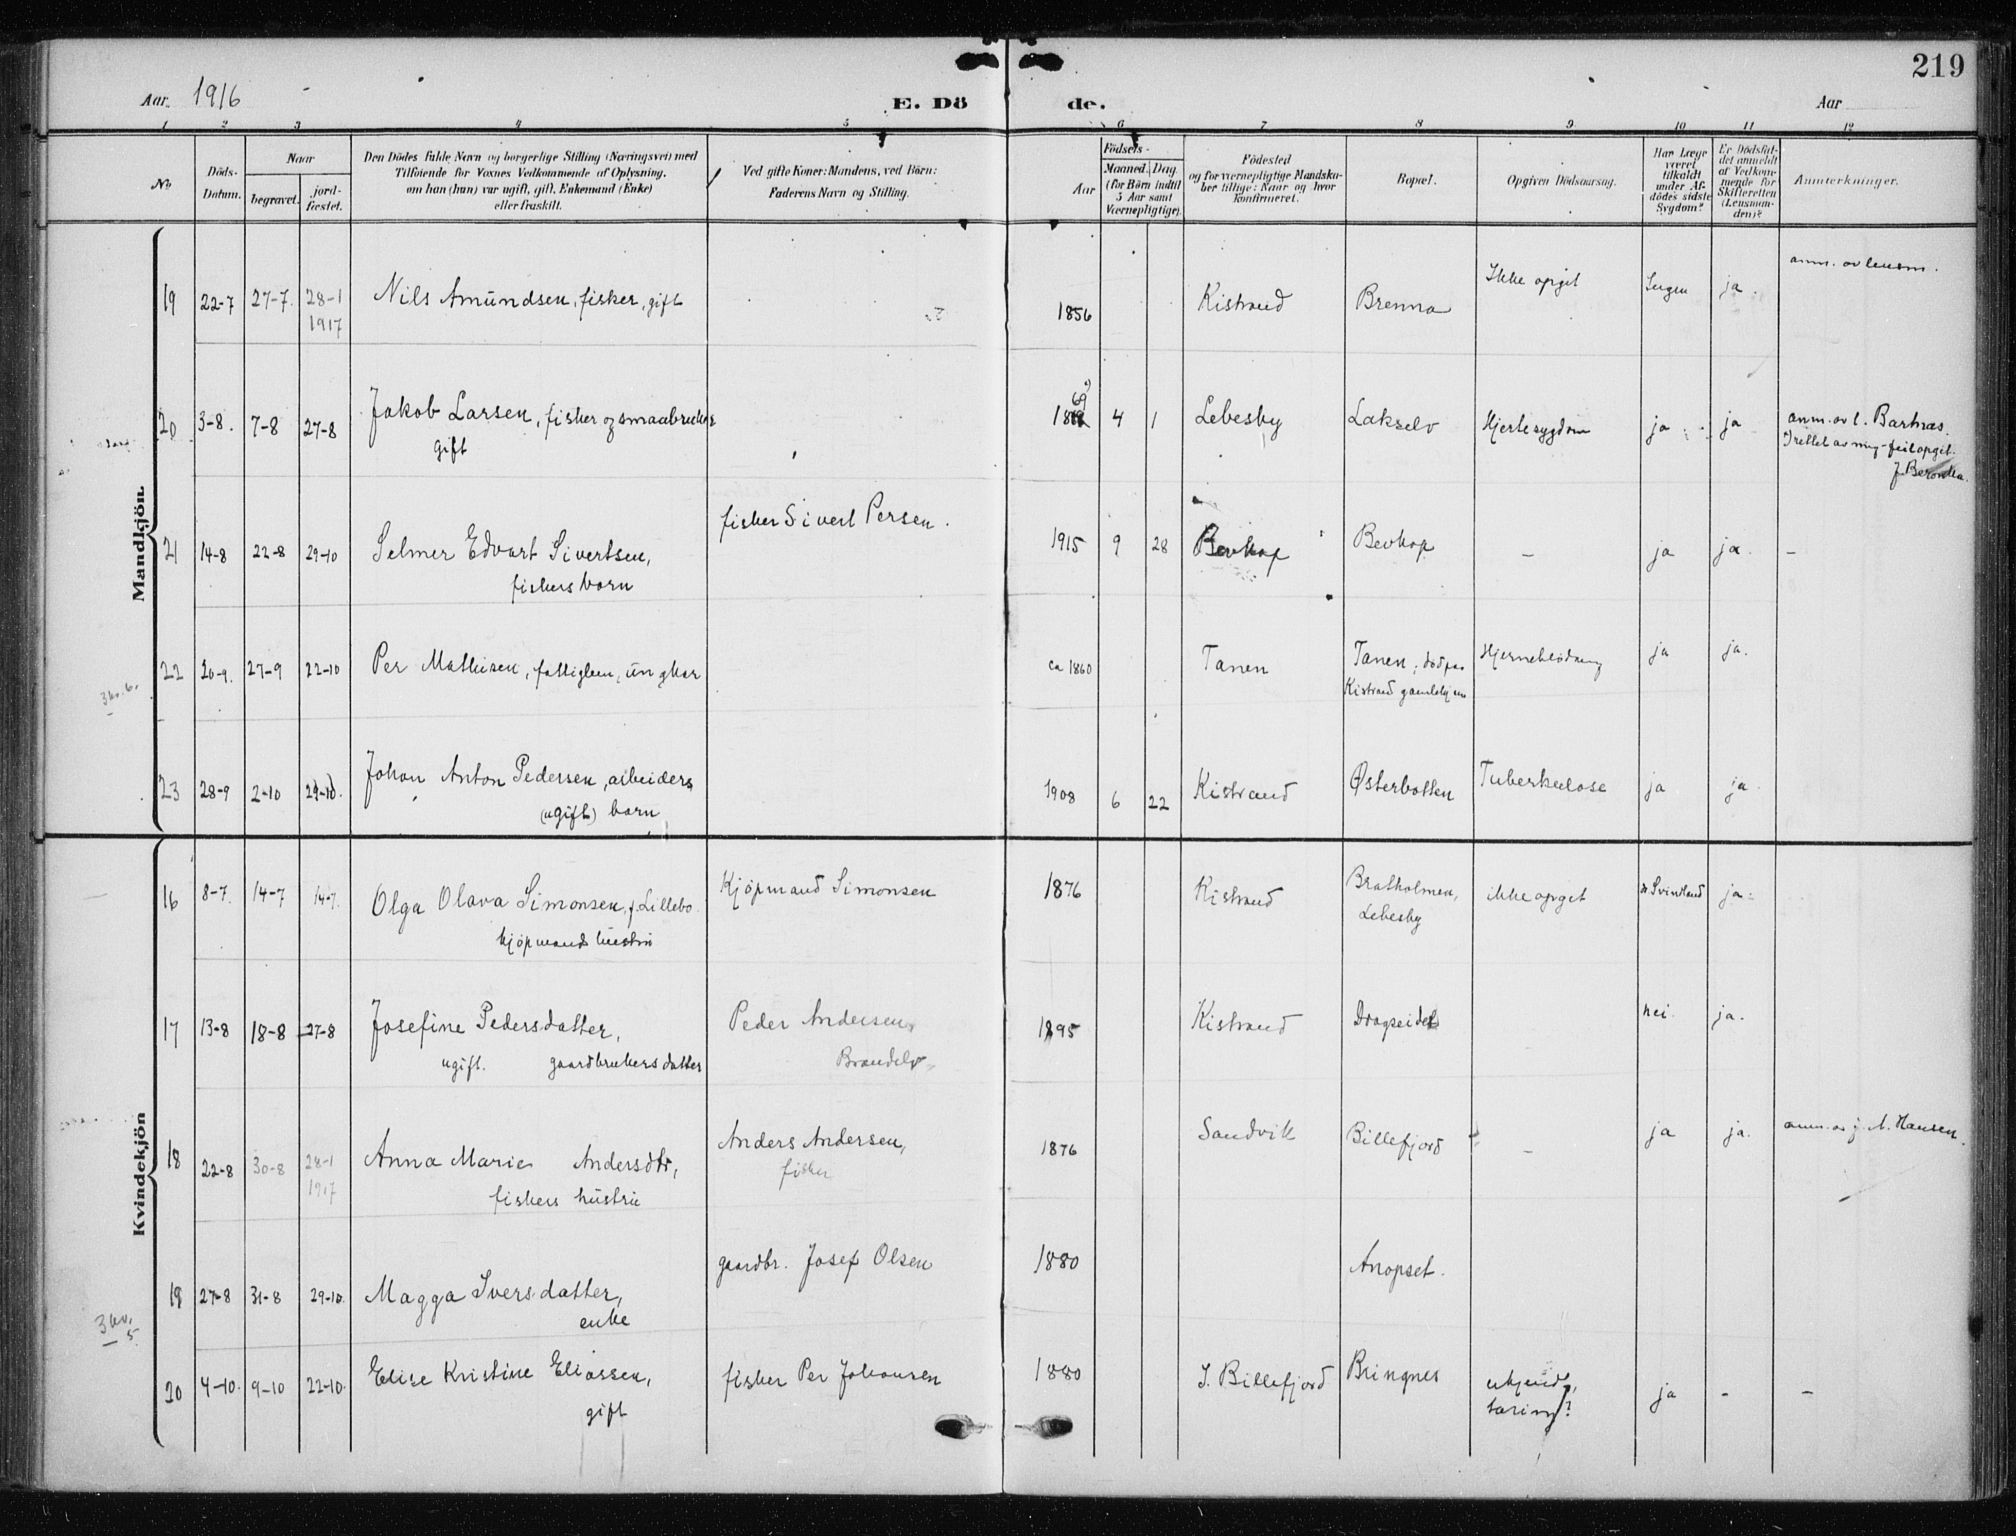 219
Aar. 1916
E. Dö de.
Aar
1 2 3 4 5 6 7 8 9 10 11 12
No
Döds-
Datum.
Naar
begravet.
jord-
fæstet.
Den Dödes fulde Navn og borgerlige Stilling (Næringsvei) med
Tilföiende for Voxnes Vedkommende af Oplysning.
om han (hun) var ugift, gift, Enkemand (Enke)
eller fraskilt.
Ved gifte Koner: Mandens, ved Börn:
Faderens Navn og Stilling.
Aar
Födsels-
Maaned. Dag.
(for Börn indtil
5 Aar samt
Værnepligtige).
Födested
og for værnepligtige Mandska-
ber tillige: Naar og hvor
konfirmeret.
Bopæl.
Opgiven Dödsaarsag.
Har Læge
været
tilkaldt
under Af-
dödes sidste
Sygdom?
Er Dödsfal-
det anmeldt
af Vedkom-
mende for
Skifteretten
(Lensman-
den)?
Anmærkninger.
Mandkjön.
19 22-7 27-7. 28-1 Nils Amundsen, fisker, gift 1856 Kistrand Brenna Ikke opgit Ingen ja. anm. av lensm.
1917
20 3-8. 7-8 27-8 Jakob Larsen, fisker og smaabruker 1869 4 1 Lebesby Lakselv Hjertesygdom ja ja anm. av l. Barnæs.
gift
Irettet av mig - feil opgit.
J. Beronka.
21 14-8 22-8 29-10 Selmer Edvart Sivertsen, fisker Sivert Persen. 1915 9 28 Bevkop Bevkop - ja ja. -
fiskers barn
22 20-9. 27-9 22-10 Per Mathisen, fattiglem, ungkar ca 1860 Tanen Tanen, död paa Hjerneblödning ja ja.
Kistrand gamlehjem
3 kv. 6.
23 28-9 2-10 29-10. Johan Anton Pedersen, arbeiders 1908 6 22 Kistrand Østerbotten Tuberkulose ja ja
(ugift) barn
Kvindekjön
16 8-7. 14-7 14-7. Olga Olava Simonsen, f. Lillebo. Kjöpmand Simonsen 1876 Kistrand Bratholmen, ikke opget dr Svindland ja.
kjöpmands hustru
Lebesby
17 13-8 18-8 27-8 Josefine Pedersdatter, Peder Andersen, 1895 Kistrand Dragseidet nei. ja.
ugift. gaardbrukers datter
Brandelv.
18 22-8 30-8 28-1 Anna Marie Andersdtr, Anders Andersen, 1876 Sandvik Billefjord - ja ja. anm. av j. A. Hansen.
1917 fiskers hustru
fisker
19 27-8 31-8 29-10. Magga Iversdatter, gaardbr. Josef Olsen 1880 Anopset.
enke
3 kv.
5
20 4-10. 9-10 22-10. Elise Kristine Eliassen, fisker Per Johansen 1880 I. Billefjord Bringnes ukjendt, ja - -
gift
tæring?